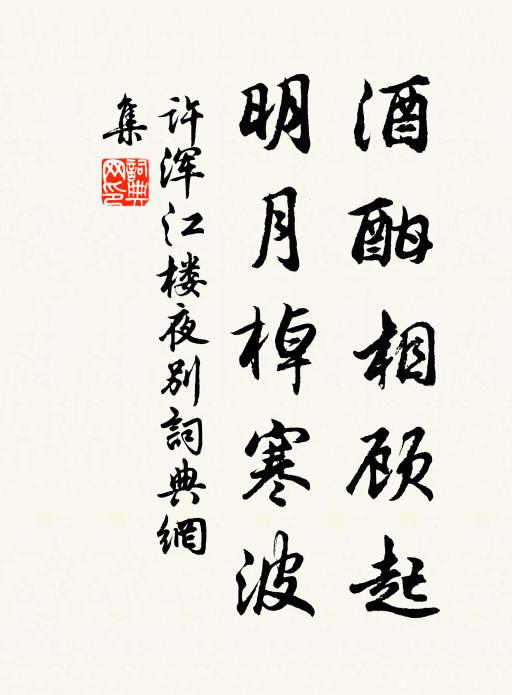 酒酣相顾起
明月棹寒波
许浑江楼夜别詞典網
集
詞典
网印